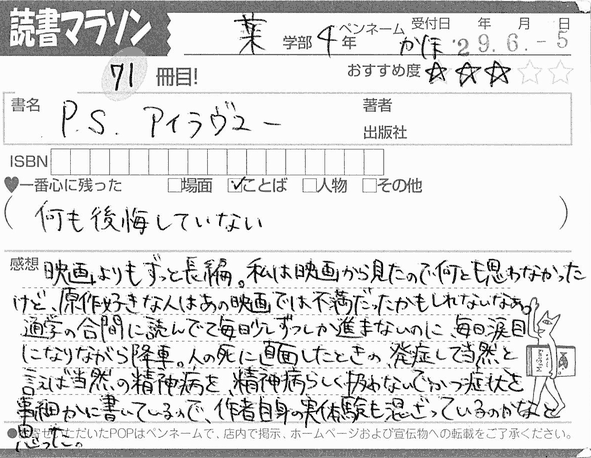 読書マラソン
薬 学部 4 年 ペンネーム かほ 受付日 '29.6.-5 年 月 日
71 冊目! おすすめ度 ☆☆☆☆☆
書名 P.S. アイラヴユー 著者
出版社
ISBN
♥一番心に残った □場面 ☑ことば □人物 □その他
(何も後悔していない)
感想 映画よりもずっと長編。私は映画から見たので何とも思わなかった
けど、原作好きな人はあの映画では不満だったかもしれないなぁ。
通学の合間に読んでて毎日少しずつしか進まないのに、毎日涙目
になりながら降車。人の死に直面したときの、発症して当然と
言えば当然の精神病を、精神病らしく扱わないでかつ症状を
事細かに書いているので、作者自身の実体験も混ざっているのかなと
思った。
●お寄せいただいたPOPはペンネームで、店内で掲示、ホームページおよび宣伝物への転載をご了承ください。